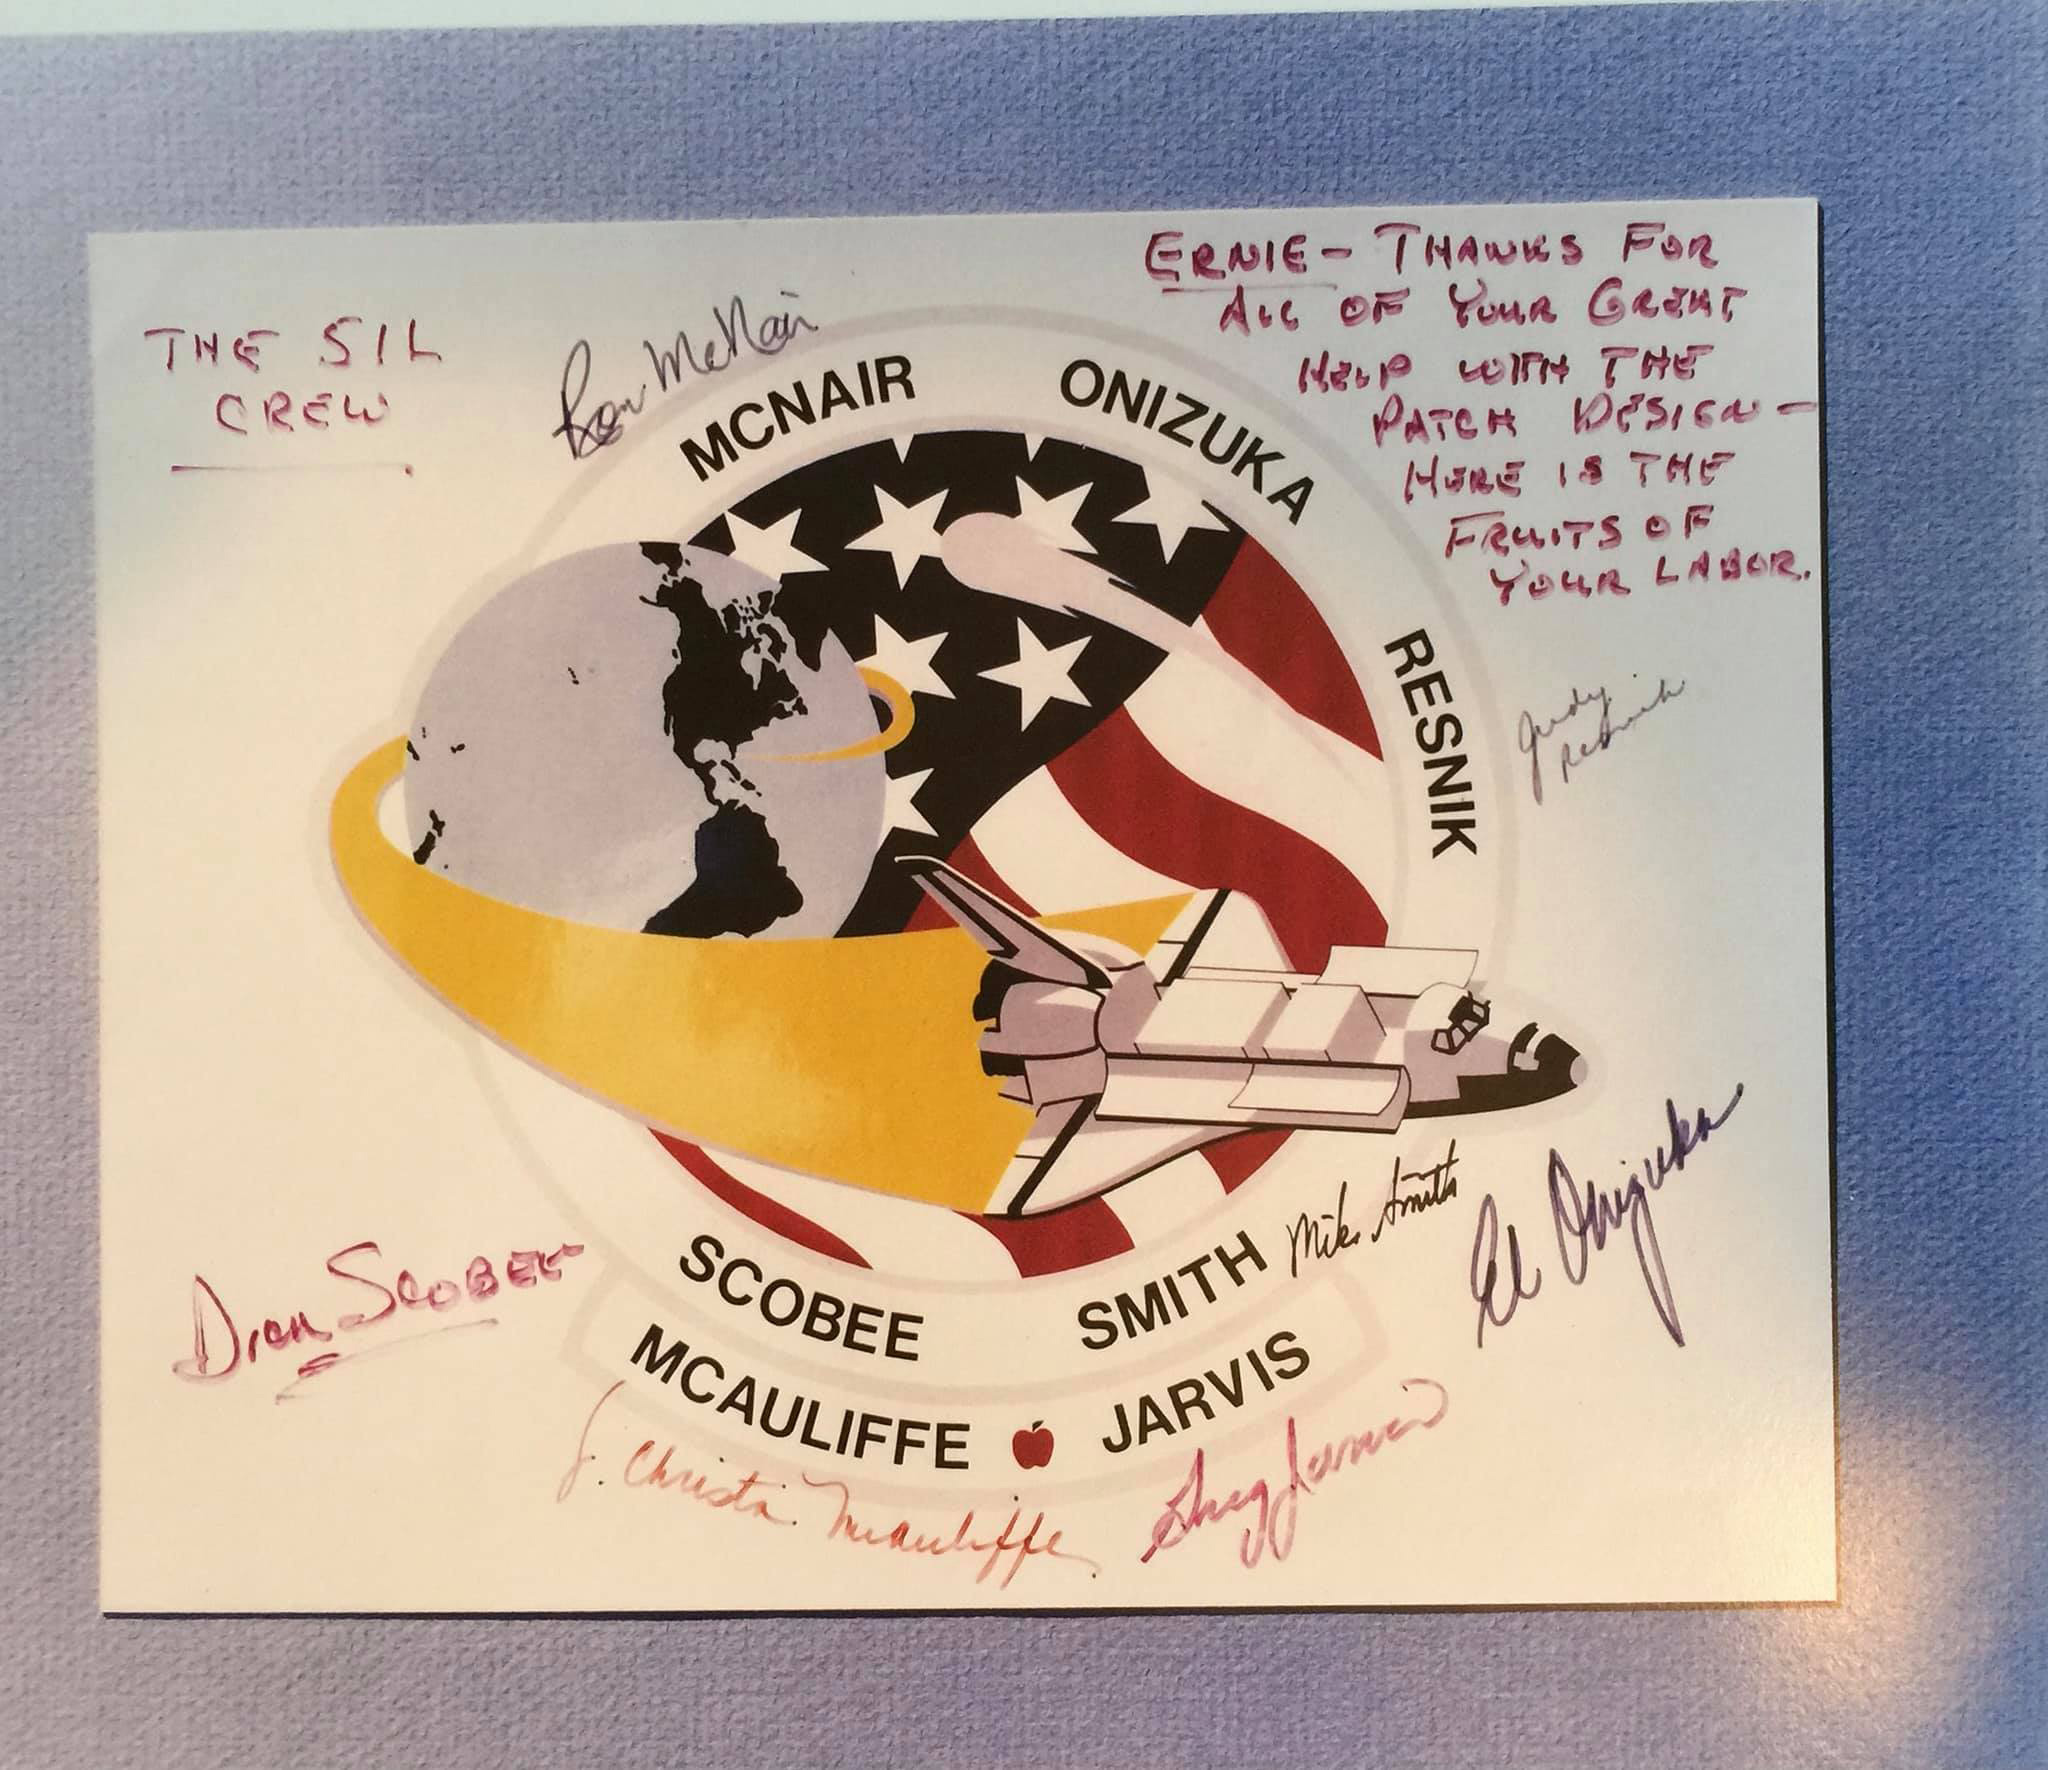 THE 51L
CREW
Ron McNair
ERNIE - THANKS FOR
ALL OF YOUR GREAT
HELP WITH THE
PATCH DESIGN -
HERE IS THE
FRUITS OF
YOUR LABOR.
MCNAIR
ONIZUKA
RESNIK
Judy
Resnik
SCOBEE
SMITH
Mike Smith
Ed Onizuka
Dick SCOBEE
MCAULIFFE
JARVIS
S. Christa McAuliffe
Greg Jarvis